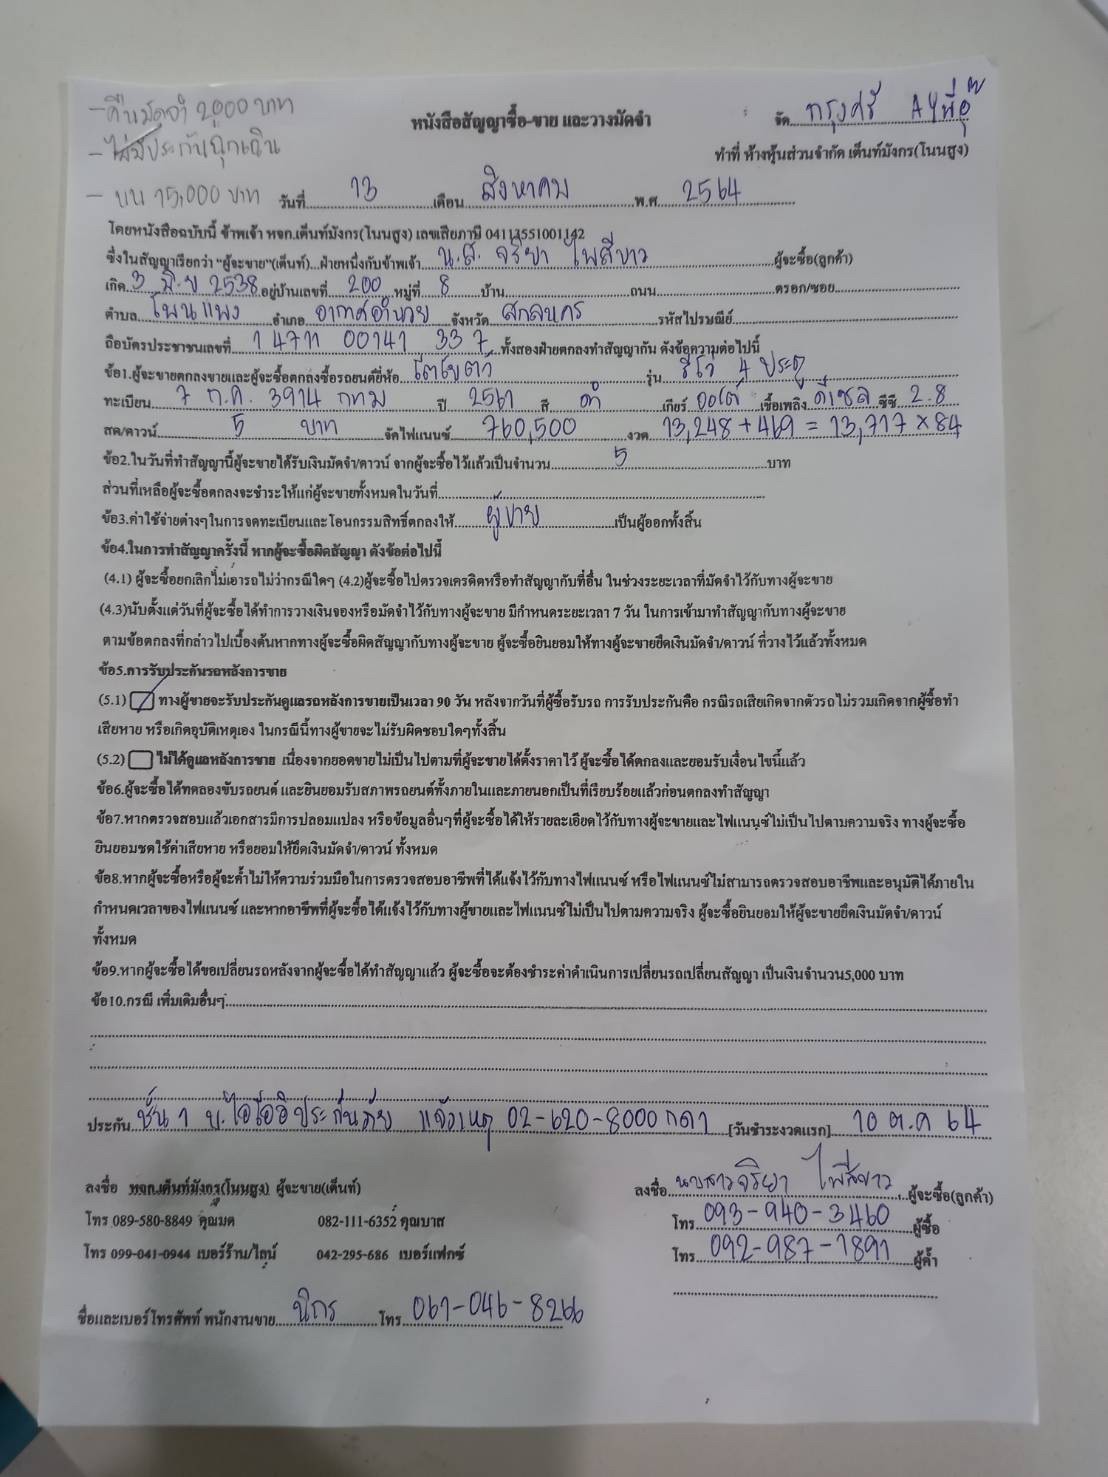 - คืนมัดจำ 2000 บาท
- ไม่มีประกันฉุกเฉิน
- บน 15,000 บาท
หนังสือสัญญาซื้อ-ขาย และวางมัดจำ
จัด กรุงศรี AY
ทำที่ ห้างหุ้นส่วนจำกัด เต็นท์มังกร(โนนสูง)
วันที่ 13 เดือน สิงหาคม พ.ศ 2564
โดยหนังสือฉบับนี้ ข้าพเจ้า หจก.เต็นท์มังกร(โนนสูง) เลขเสียภาษี 04113551001142
ซึ่งในสัญญาเรียกว่า "ผู้จะขาย"(เต็นท์)...ฝ่ายหนึ่งกับข้าพเจ้า น.ส. จริยา ไพสีขาว ผู้จะซื้อ(ลูกค้า)
เกิด 3 มิ.ย 2538 อยู่บ้านเลขที่ 200 หมู่ที่ 8 บ้าน ถนน ตรอก/ซอย
ตำบล โพนแพง อำเภอ อากาศอำนวย จังหวัด สกลนคร รหัสไปรษณีย์
ถือบัตรประชาชนเลขที่ 1 4711 00141 33 7 ทั้งสองฝ่ายตกลงทำสัญญากัน ดังข้อความต่อไปนี้
ข้อ1.ผู้จะขายตกลงขายและผู้จะซื้อตกลงซื้อรถยนต์ยี่ห้อ โตโยต้า รุ่น รีโว่ 4 ประตู
ทะเบียน 7 ก.ค. 3914 กทม ปี 2561 สี ดำ เกียร์ ออโต้ เชื้อเพลิง ดีเซล ซีซี 2.8
สด/ดาวน์ 5 บาท จัดไฟแนนซ์ 760,500 งวด 13,248 + 469 = 13,717 x 84
ข้อ2.ในวันที่ทำสัญญานี้ผู้จะขายได้รับเงินมัดจำ/ดาวน์ จากผู้จะซื้อไว้แล้วเป็นจำนวน 5 บาท
ส่วนที่เหลือผู้จะซื้อตกลงจะชำระให้แก่ผู้จะขายทั้งหมดในวันที่
ข้อ3.ค่าใช้จ่ายต่างๆในการจดทะเบียนและโอนกรรมสิทธิ์ตกลงให้ ผู้ขาย เป็นผู้ออกทั้งสิ้น
ข้อ4.ในการทำสัญญาครั้งนี้ หากผู้จะซื้อผิดสัญญา ดังข้อต่อไปนี้
(4.1) ผู้จะซื้อยกเลิกไม่เอารถไม่ว่ากรณีใดๆ (4.2)ผู้จะซื้อไปตรวจเครดิตหรือทำสัญญากับที่อื่น ในช่วงระยะเวลาที่มัดจำไว้กับทางผู้จะขาย
(4.3)นับตั้งแต่วันที่ผู้จะซื้อได้ทำการวางเงินจองหรือมัดจำไว้กับทางผู้จะขาย มีกำหนดระยะเวลา 7 วัน ในการเข้ามาทำสัญญากับทางผู้จะขาย
ตามข้อตกลงที่กล่าวไปเบื้องต้นหากทางผู้จะซื้อผิดสัญญากับทางผู้จะขาย ผู้จะซื้อยินยอมให้ทางผู้จะขายยึดเงินมัดจำ/ดาวน์ ที่วางไว้แล้วทั้งหมด
ข้อ5.การรับประกันรถหลังการขาย
(5.1) ทางผู้ขายจะรับประกันดูแลรถหลังการขายเป็นเวลา 90 วัน หลังจากวันที่ผู้ซื้อรับรถ การรับประกันคือ กรณีรถเสียเกิดจากตัวรถไม่รวมเกิดจากผู้ซื้อทำ
เสียหาย หรือเกิดอุบัติเหตุเอง ในกรณีนี้ทางผู้ขายจะไม่รับผิดชอบใดๆทั้งสิ้น
(5.2) ไม่ได้ดูแลหลังการขาย เนื่องจากยอดขายไม่เป็นไปตามที่ผู้จะขายได้ตั้งราคาไว้ ผู้จะซื้อได้ตกลงและยอมรับเงื่อนไขนี้แล้ว
ข้อ6.ผู้จะซื้อได้ทดลองขับรถยนต์ และยินยอมรับสภาพรถยนต์ทั้งภายในและภายนอกเป็นที่เรียบร้อยแล้วก่อนตกลงทำสัญญา
ข้อ7.หากตรวจสอบแล้วเอกสารมีการปลอมแปลง หรือข้อมูลอื่นๆที่ผู้จะซื้อได้ให้รายละเอียดไว้กับทางผู้จะขายและไฟแนนซ์ไม่เป็นไปตามความจริง ทางผู้จะซื้อ
ยินยอมชดใช้ค่าเสียหาย หรือยอมให้ยึดเงินมัดจำ/ดาวน์ ทั้งหมด
ข้อ8.หากผู้จะซื้อหรือผู้จะค้ำไม่ให้ความร่วมมือในการตรวจสอบอาชีพที่ได้แจ้งไว้กับทางไฟแนนซ์ หรือไฟแนนซ์ไม่สามารถตรวจสอบอาชีพและอนุมัติได้ภายใน
กำหนดเวลาของไฟแนนซ์ และหากอาชีพที่ผู้จะซื้อได้แจ้งไว้กับทางผู้ขายและไฟแนนซ์ไม่เป็นไปตามความจริง ผู้จะซื้อยินยอมให้ผู้จะขายยึดเงินมัดจำ/ดาวน์
ทั้งหมด
ข้อ9.หากผู้จะซื้อได้ขอเปลี่ยนรถหลังจากผู้จะซื้อได้ทำสัญญาแล้ว ผู้จะซื้อจะต้องชำระค่าดำเนินการเปลี่ยนรถเปลี่ยนสัญญา เป็นเงินจำนวน5,000 บาท
ข้อ10.กรณี เพิ่มเติมอื่นๆ
ประกัน ชั้น 1 บ.ไอโออิประกันภัย แจ้งเหตุ 02-620-8000 กด1 [วันชำระงวดแรก] 10 ต.ค 64
ลงชื่อ หจก.เต็นท์มังกร(โนนสูง) ผู้จะขาย(เต็นท์)
ลงชื่อ นางสาวจริยา ไพสีขาว ผู้จะซื้อ(ลูกค้า)
โทร 089-580-8849 คุณมด 082-111-6352 คุณบาส
โทร 093-940-3460 ผู้ซื้อ
โทร 099-041-0944 เบอร์ร้าน/ไลน์ 042-295-686 เบอร์แฟกซ์
โทร 092-987-1891 ผู้ค้ำ
ชื่อและเบอร์โทรศัพท์ พนักงานขาย นิกร โทร 061-046-8266